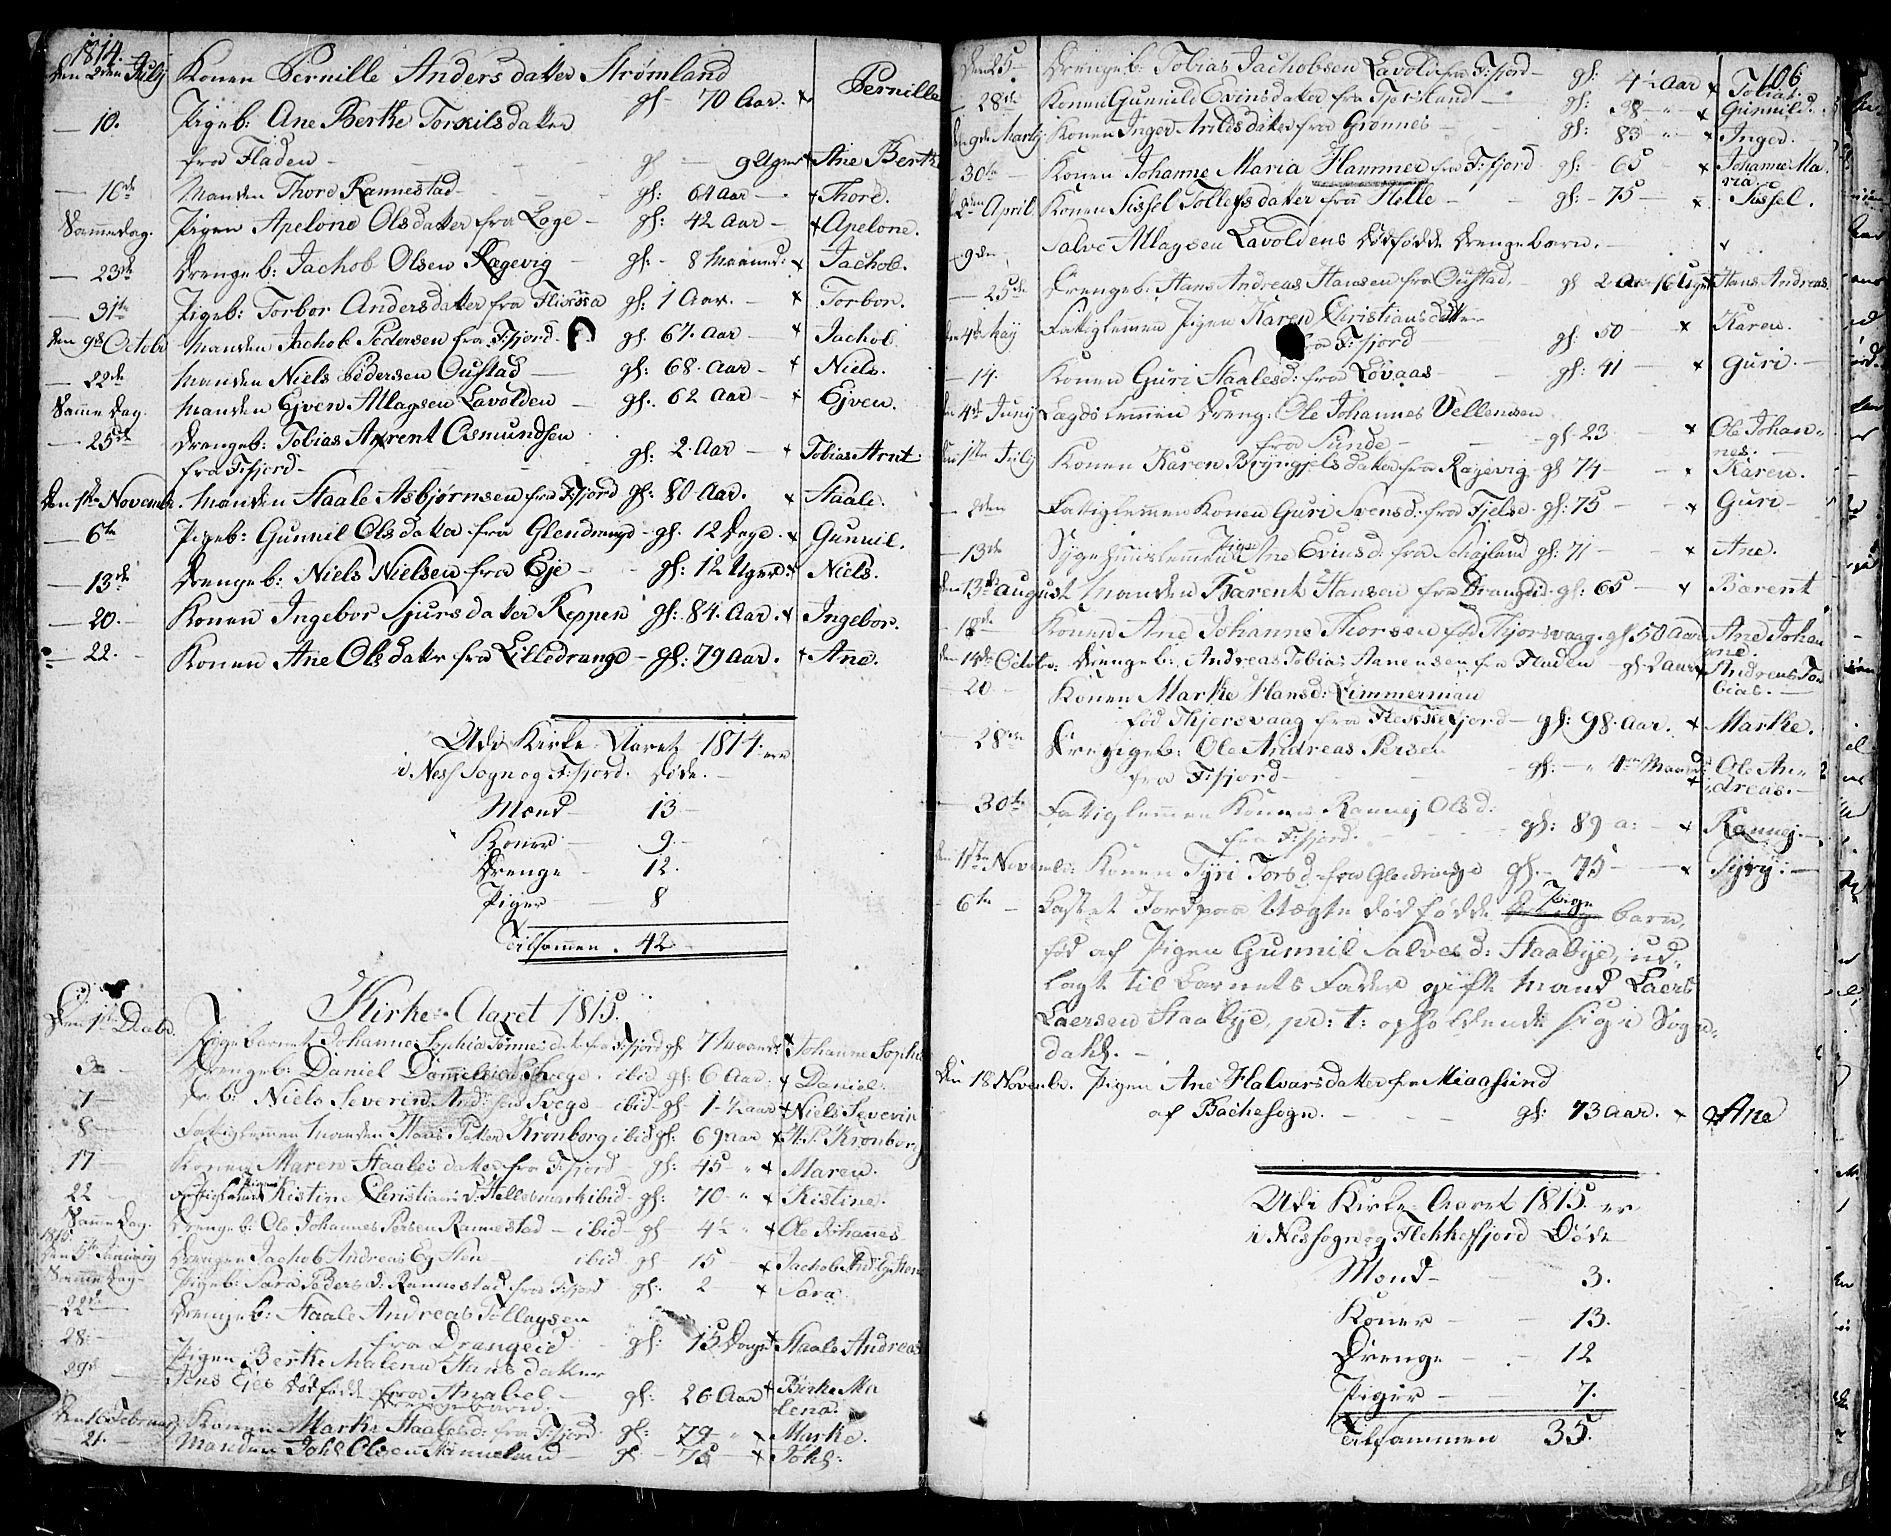 1814.
Den 2den July Konen Pernille Andersdatter Strømland gl: 70 Aar. × Pernille
— 10. Pigeb: Ane Berthe Torkilsdatter
fra Fladen — gl — 9 Uger × Ane Berth
— 16de Manden Thore Rannestad — gl: 64 Aar — × Thore.
Samme dag. Pigen Apelone Olsdatter fra Loge — gl: 42 Aar — × Apelone.
— 23de Drengeb: Jachob Olsen Rægevig — gl: — 8 Maaned: × Jachob.
— 31te Pigeb: Torbor Andersdatter fra gl: 1 Aar. — × Torbor.
den 9de Octobr Manden Jachob Pedersen fra F:fjord. gl: 67. Aar — × Jachob
— 22de Manden Niels Pedersen Oustad — gl: 68. Aar — × Niels.
Samme Dag. Manden Ejven Atlagsen Lavolden — gl: 62 Aar — × Ejven.
— 25de Drengeb: Tobias Arent Osmundsen
fra F:fjord — gl: 2. Aar — × Tobias Arnt.
Den 1te Novembr. Manden Staale Asbjørnsen fra F:fjord gl: 80 Aar. × Staale.
— 6te Pigeb: Gunnil Olsdatter fra Glendrange — gl. 12 Dage. × Gunnil.
— 13de Drengeb: Niels Nielsen fra Eje — gl: 12 Uger × Niels.
— 20. — Konen Ingebor Sjursdatter Reppen gl: 84. Aar. × Ingebor.
— 22. — Konen Ane Olsdatter fra Lilledrange — gl: 79 Aar. × Ane.
Udi Kirke-Aaret 1814. ere
i Ness Sogn og F:fjord. Døde. —
Mænd — 13 —
Koner — 9. —
Drenge — 12.
Piger — 8
Tilsammen. 42 —
Kirke-Aaret 1815.
Den 1te Decbr. Pigebarnet Johanne Sophia Tønnesdat: fra F:fjord gl: 7 Maaned × Johanne Sophi
3de — Drengeb: Daniel Svege. ibid gl: 6 Aar. × Daniel.
7 — Dr: b: Niels Severin And:sen Svege — ibid — gl — 1 ½ Aar × Niels Severin
8 — Fattiglemmen Manden Hans Petter Kronborg ibid gl: 69 Aar × H. P. Kronborg
17 — Konen Maren Staalesdatter fra F:fjord — gl: 45 — " × Maren.
22 — Fattiglemmet Pigen Kistine Christians d: Hellesmark ibid — gl: 70 — " × Kistine.
Samme Dag. Drengeb: Ole Johannes Persen Rannestad — ibid — gl — 4 ½ " × Ole Johannes
1815
Den 5te Januarij Drengen Jachob Andreas Eg Sten — ibid gl — 15 — × Jachob And: Eg Sten
Samme Dag — Pigeb: Sara Peders d: Rannestad fra F:fjord gl: 2 — × Sara
— 22de — Drengeb: Staale Andreas Tollagsen
28. — fra Drangeid — gl: 15 Dage × Staale Andreas
Pigen Berthe Malena Hansdatter
29de — Jens Ejes Dødfødde fra Anabel — gl: 26 Aar × Birthe Ma
Drengebarn. lena.
Den 16 Februarj Konen Marthe Staales d: fra F:fjord. gl: 79 — " × Marthe.
21. — Manden Johs Olsen gl — 75 — × Johs:
106
Den 25 — Drengeb: Tobias Jachobsen Lavold fra F:fjord — gl: 4 ½ Aar × Tobias.
— 28de Konen Gunnild Evinsdatter fra — gl: 58 — " — × Gunnild.
Den 9de Martij Konen Inger Arildsdatter fra Grønnes — gl: 83 — " — × Inger.
— 30te — Konen Johanne Maria Hammer fra F:fjord gl: 65 — × Johanne Ma-
ria
2den April. Konen Sissel Tollefsdatter fra Hille — gl: — 75 — × Sissel.
— 9de Salve Atlagsen Lavoldens Dødfødde Drengebarn. — ×
— 25de Drengeb: Hans Andreas Hansen fra Oustad. gl 2 Aar 16 Uger Hans Andreas
den 4de Maij Fattiglemmen Pigen Karen Christiansdatter
fra F:fjord — gl: 50 — × Karen.
— 14. Konen Guri Staales d: fra Løvaas — gl: 41 — × Guri. —
den 4de Junij Lagdslemmen Dreng: Ole Johannes Vellensen
fra Sunde — gl 23 — × Ole Johan-
nes. —
den 1te Julij Konen Karen Bryngjels datter fra Rægevig — gl 74 — — × Karen.
— 8den Fattiglemmen Konen Guri Svens d. fra Fjelse. gl: 75 — — × Guri —
— 13de Sygehuuslemmen Pige Ane Evins d: fra gl: 71 — × Ane.
den 13de August Manden Barent Hansen fra Drangeid. gl: 65 — × Barent
— 18de — Konen Ane Johanne Thorsen fød Thjorsvaag. gl 50 Aar Ane Johan
ane.
den 14de Octobr: Drengeb: Andreas Tobias Aanensen fra Fladen — gl 2 Aar × Andreas To-
bias. —
— 20 — Konen Marthe Hans d: Zimmerman
fød Thjorsvaag fra Flekkefjord — gl: 98. Aar. × Marthe.
— 28de — Drengeb: Ole Andreas Persen
fra F:fjord — gl: — " 4re Maaned: × Ole An-
dreas. —
— 30te — Fattiglemmen Konen Rannej Ols d:
fra F:fjord. — gl: 89 a: — × Rannej. —
den 1te Novembr: Konen Tyri Tors d. fra Glendrange gl. — 75 — — × Tyri: —
— 6te — Lastet Jordpaa Uægte dødfødde Pige barn,
fød af Pigen Gunnil Salves d: Staabye, ud-
lagt til Barnets Fader gift Mand Laers
Laersen Staabye, p: t: opholdende sig i Sogn-
dahl. —
den 18 Novembr. Pigen Ane Halvarsdatter fra Miaasund
af Bachesogn. — — gl: 73 Aar. × Ane
Udi Kirke-Aaret 1815. er
i Nessogn og Flekkefjord Døde
Mænd — — 3.
Koner — — 13.
Drenge — — 12
Piger — — 7.
Tilsammen 35.